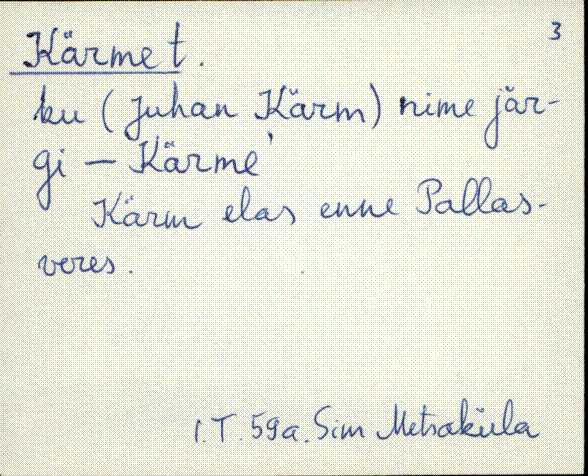 3
Kärme t.
ku (Juhan Kärm) nime jär-
gi — Kärme'
Kärm elas enne Pallas-
veres.
I.T. 59a. Sim Metsaküla